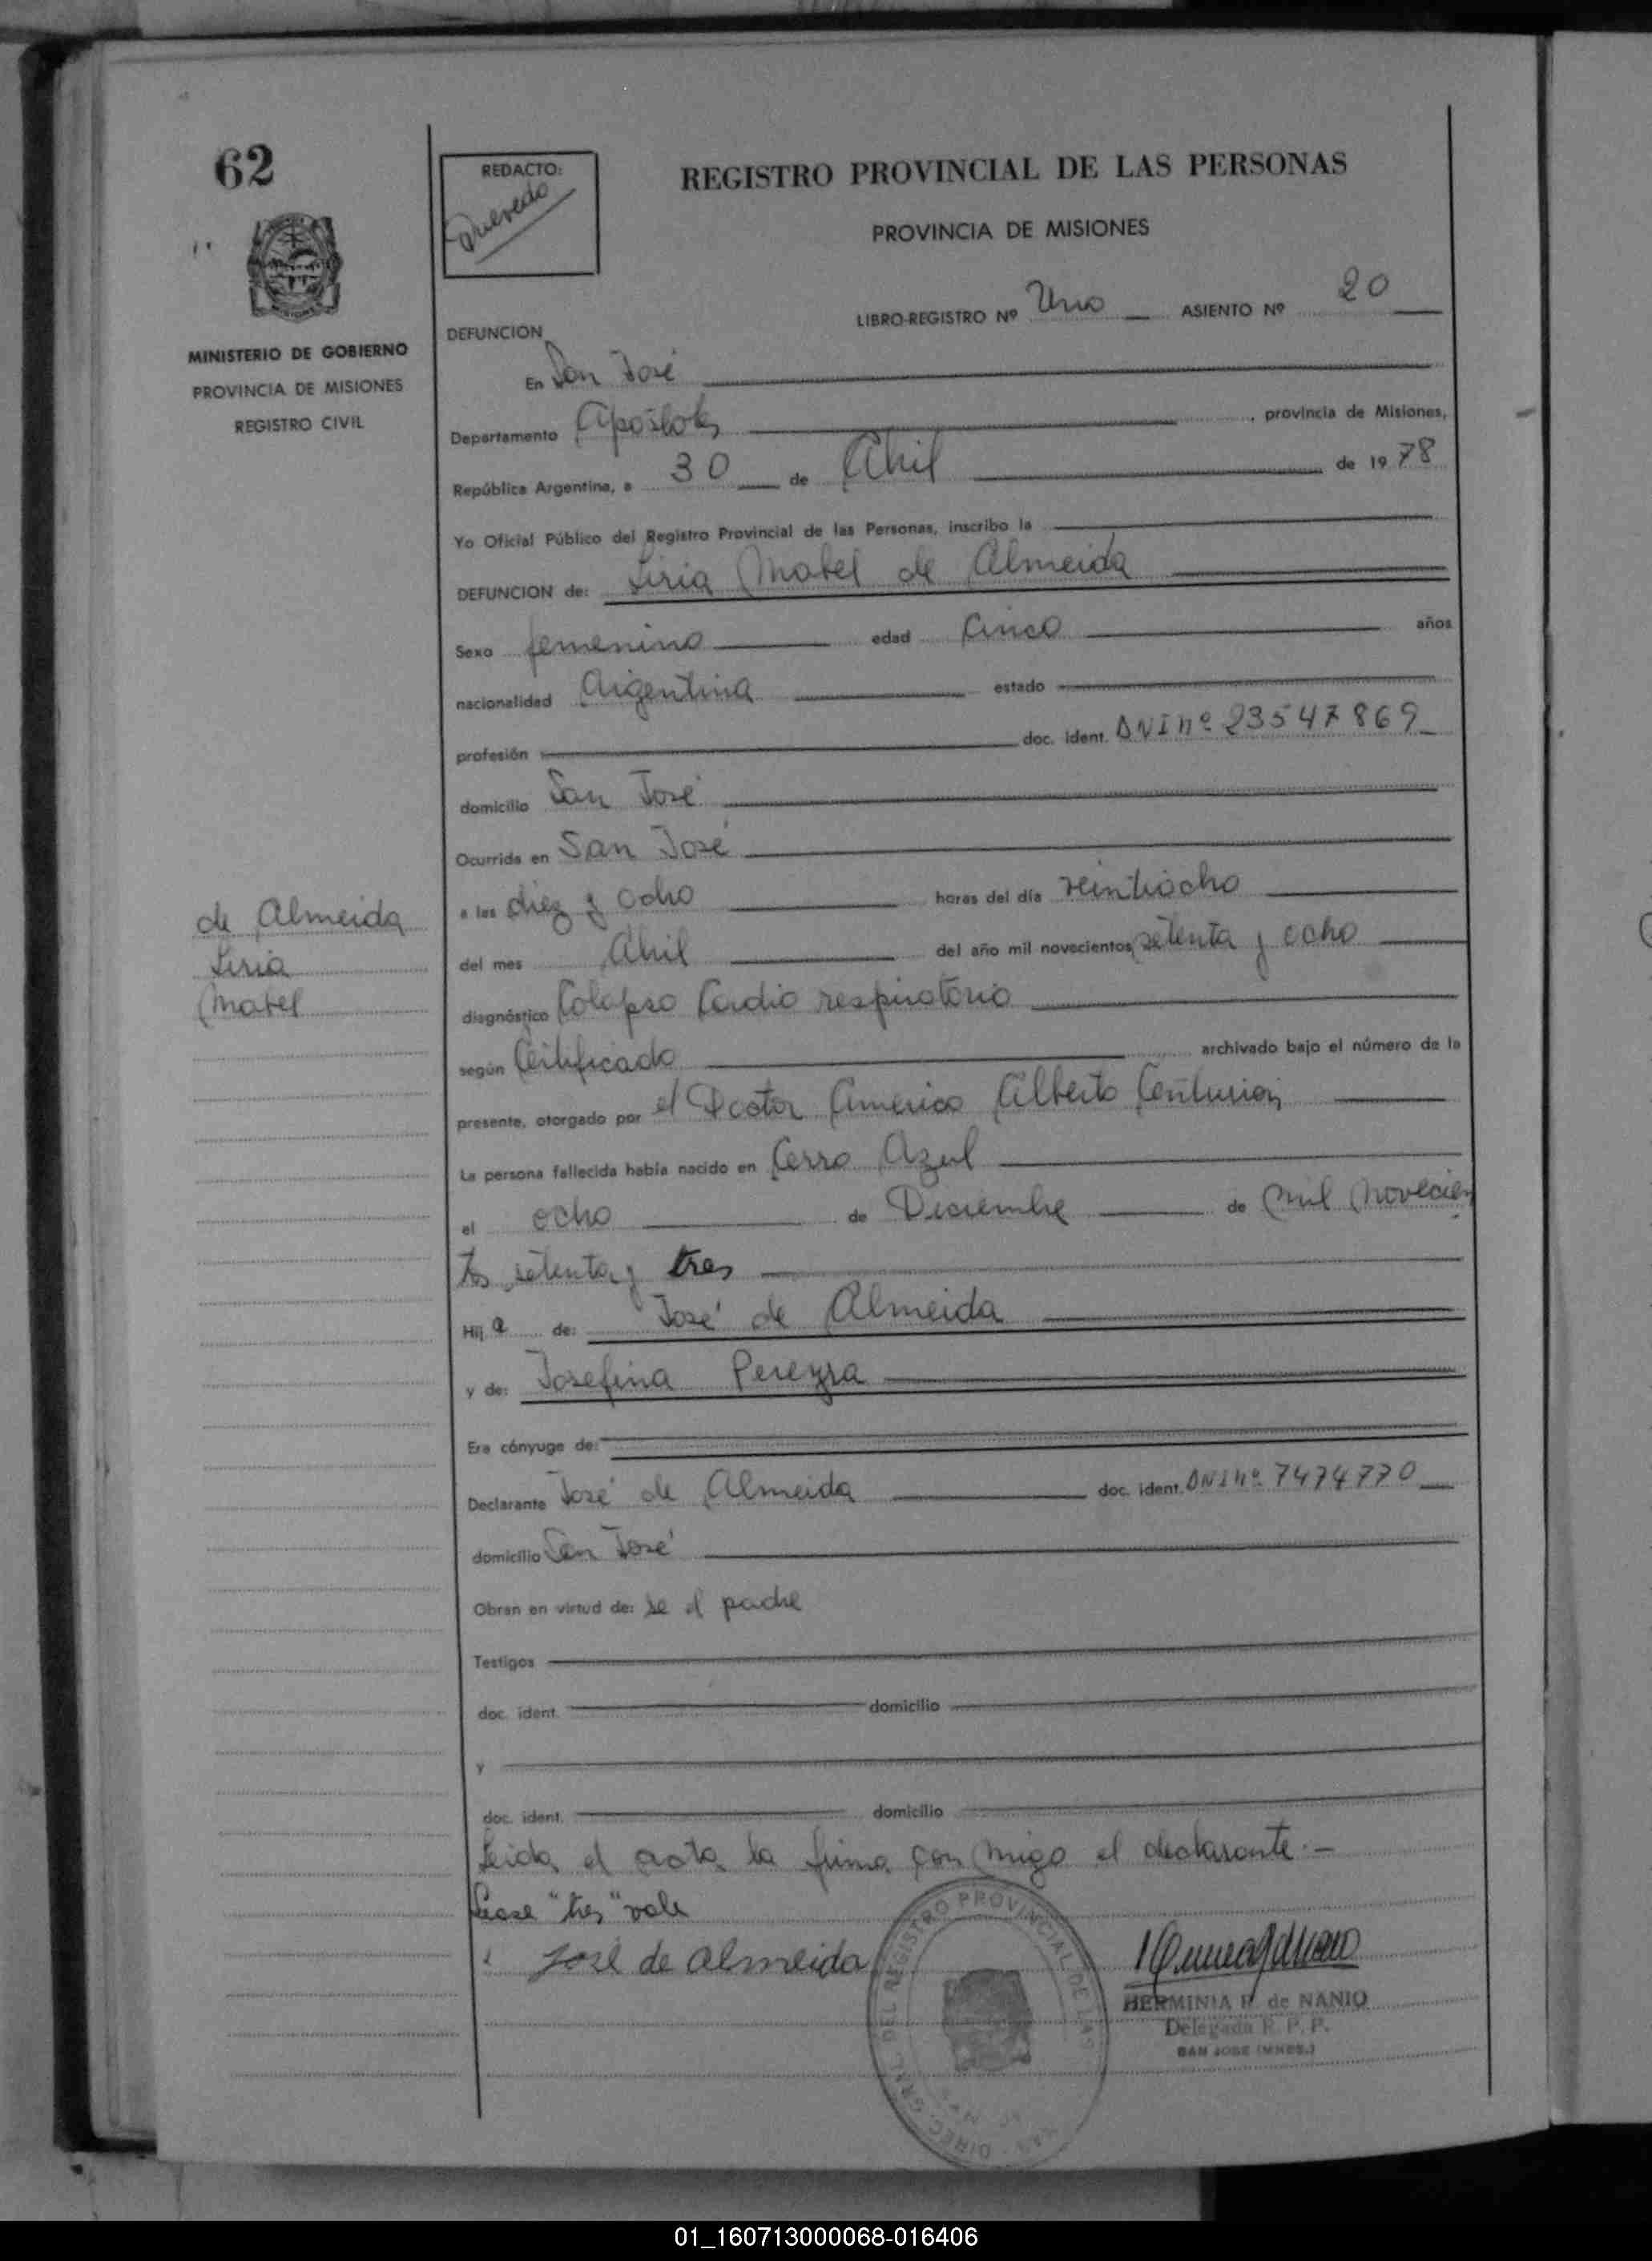 62
REDACTO:
Quevedo
REGISTRO PROVINCIAL DE LAS PERSONAS
PROVINCIA DE MISIONES
LIBRO-REGISTRO Nº Uno ASIENTO Nº 20
MINISTERIO DE GOBIERNO
PROVINCIA DE MISIONES
REGISTRO CIVIL
DEFUNCION
En San José
Departamento Apóstoles, provincia de Misiones,
República Argentina, a 30 de Abril de 1978
Yo Oficial Público del Registro Provincial de las Personas, inscribo la
DEFUNCION de: Liria Mabel de Almeida
Sexo femenino edad Cinco años
nacionalidad Argentina estado
profesión doc. ident. DNI nº 23547869
domicilio San José
Ocurrida en San José
a las diez y ocho horas del día veintiocho
del mes Abril del año mil novecientos setenta y ocho
diagnóstico Colapso Cardio respiratorio
según Certificado archivado bajo el número de la
presente, otorgado por el Doctor Americo Alberto Centurion
La persona fallecida había nacido en Cerro Azul
el ocho de Diciembre de mil novecien
tos setenta y tres
Hija de: José de Almeida
y de: Josefina Pereyra
Era cónyuge de:
Declarante José de Almeida doc. ident. DNI nº 7474770
domicilio San José
Obran en virtud de: se el padre
Testigos
doc. ident. domicilio
y
doc. ident. domicilio
Leida el acta la firma con migo el declarante.-
Lease "tres" vale
José de almeida
de Almeida
Liria
Mabel
DIREC. GRAL. DEL REGISTRO PROVINCIAL DE LAS
HERMINIA R. de NANIO
Delegada R. P. P.
SAN JOSE (MNES.)
01_160713000068-016406